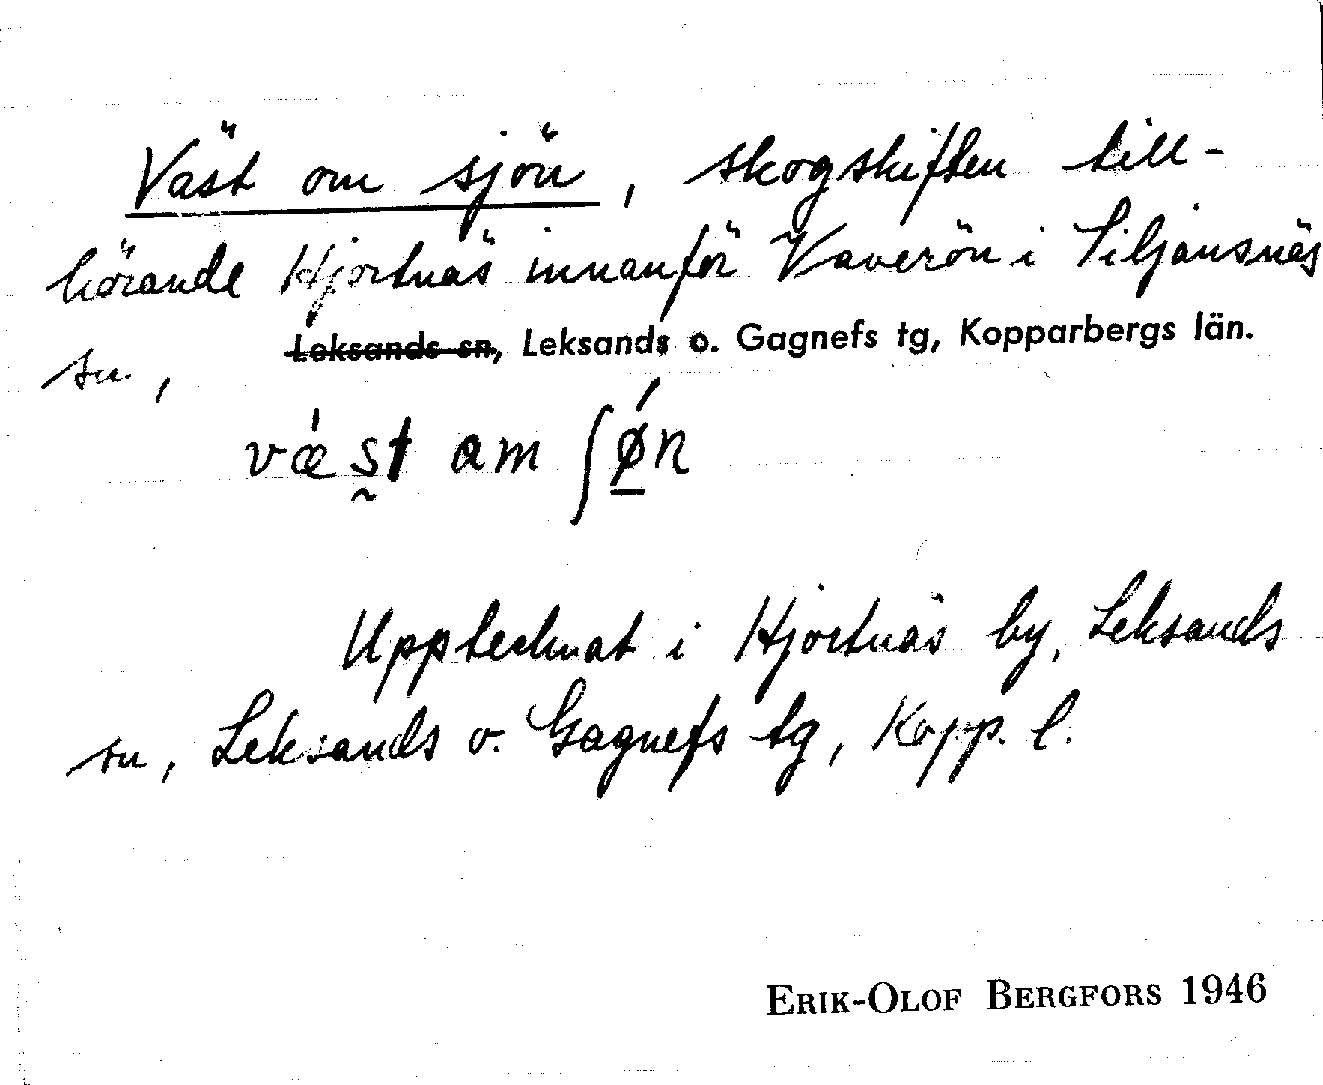 Väst om sjön, skogskiften till-
hörande Hjortnäs innanför Vaverön i Siljansnäs
sn, Leksands sn, Leksands o. Gagnefs tg, Kopparbergs län.
vǽs̰t am ʃǿ̲n
Upptecknat i Hjortnäs by, Leksands
sn, Leksands o. Gagnefs tg, Kopp. l.
ERIK-OLOF BERGFORS 1946